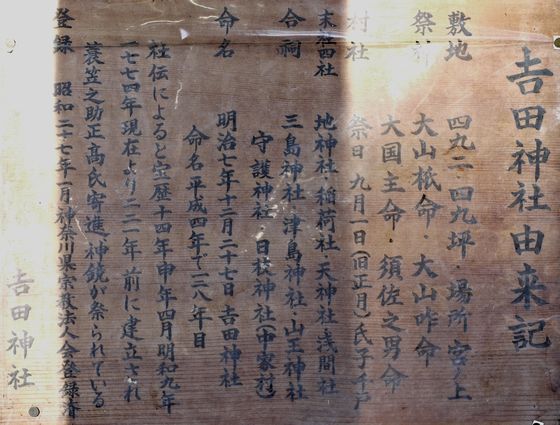 吉田神社由来記
敷地 四九二・四九坪・場所 宮ノ上
祭神 大山祇命・大山咋命
大国主命・須佐之男命
村社 祭日 九月一日(旧正月)氏子千戸
末社四社 地神社・稲荷社・天神社・浅間社
合祠 三島神社・津島神社・山王神社
守護神社・日枝神社(中家村)
命名 明治七年十二月二十七日 吉田神社
命名平成四年で一一八年目
社伝によると宝歴十四年申年四月明和九年
一七七四年現在より二二一年前に建立され
蓑笠之助正高氏寄進神鏡が祭られている
登録 昭和二十七年一月神奈川県宗教法人会登録済
吉田神社